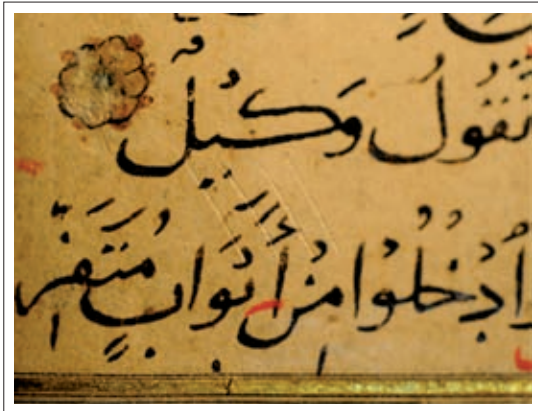 نَقُولُ وَكِيلٌ
وَادْخُلُوا مِنْ أَبْوَابٍ مُتَفَرِّ